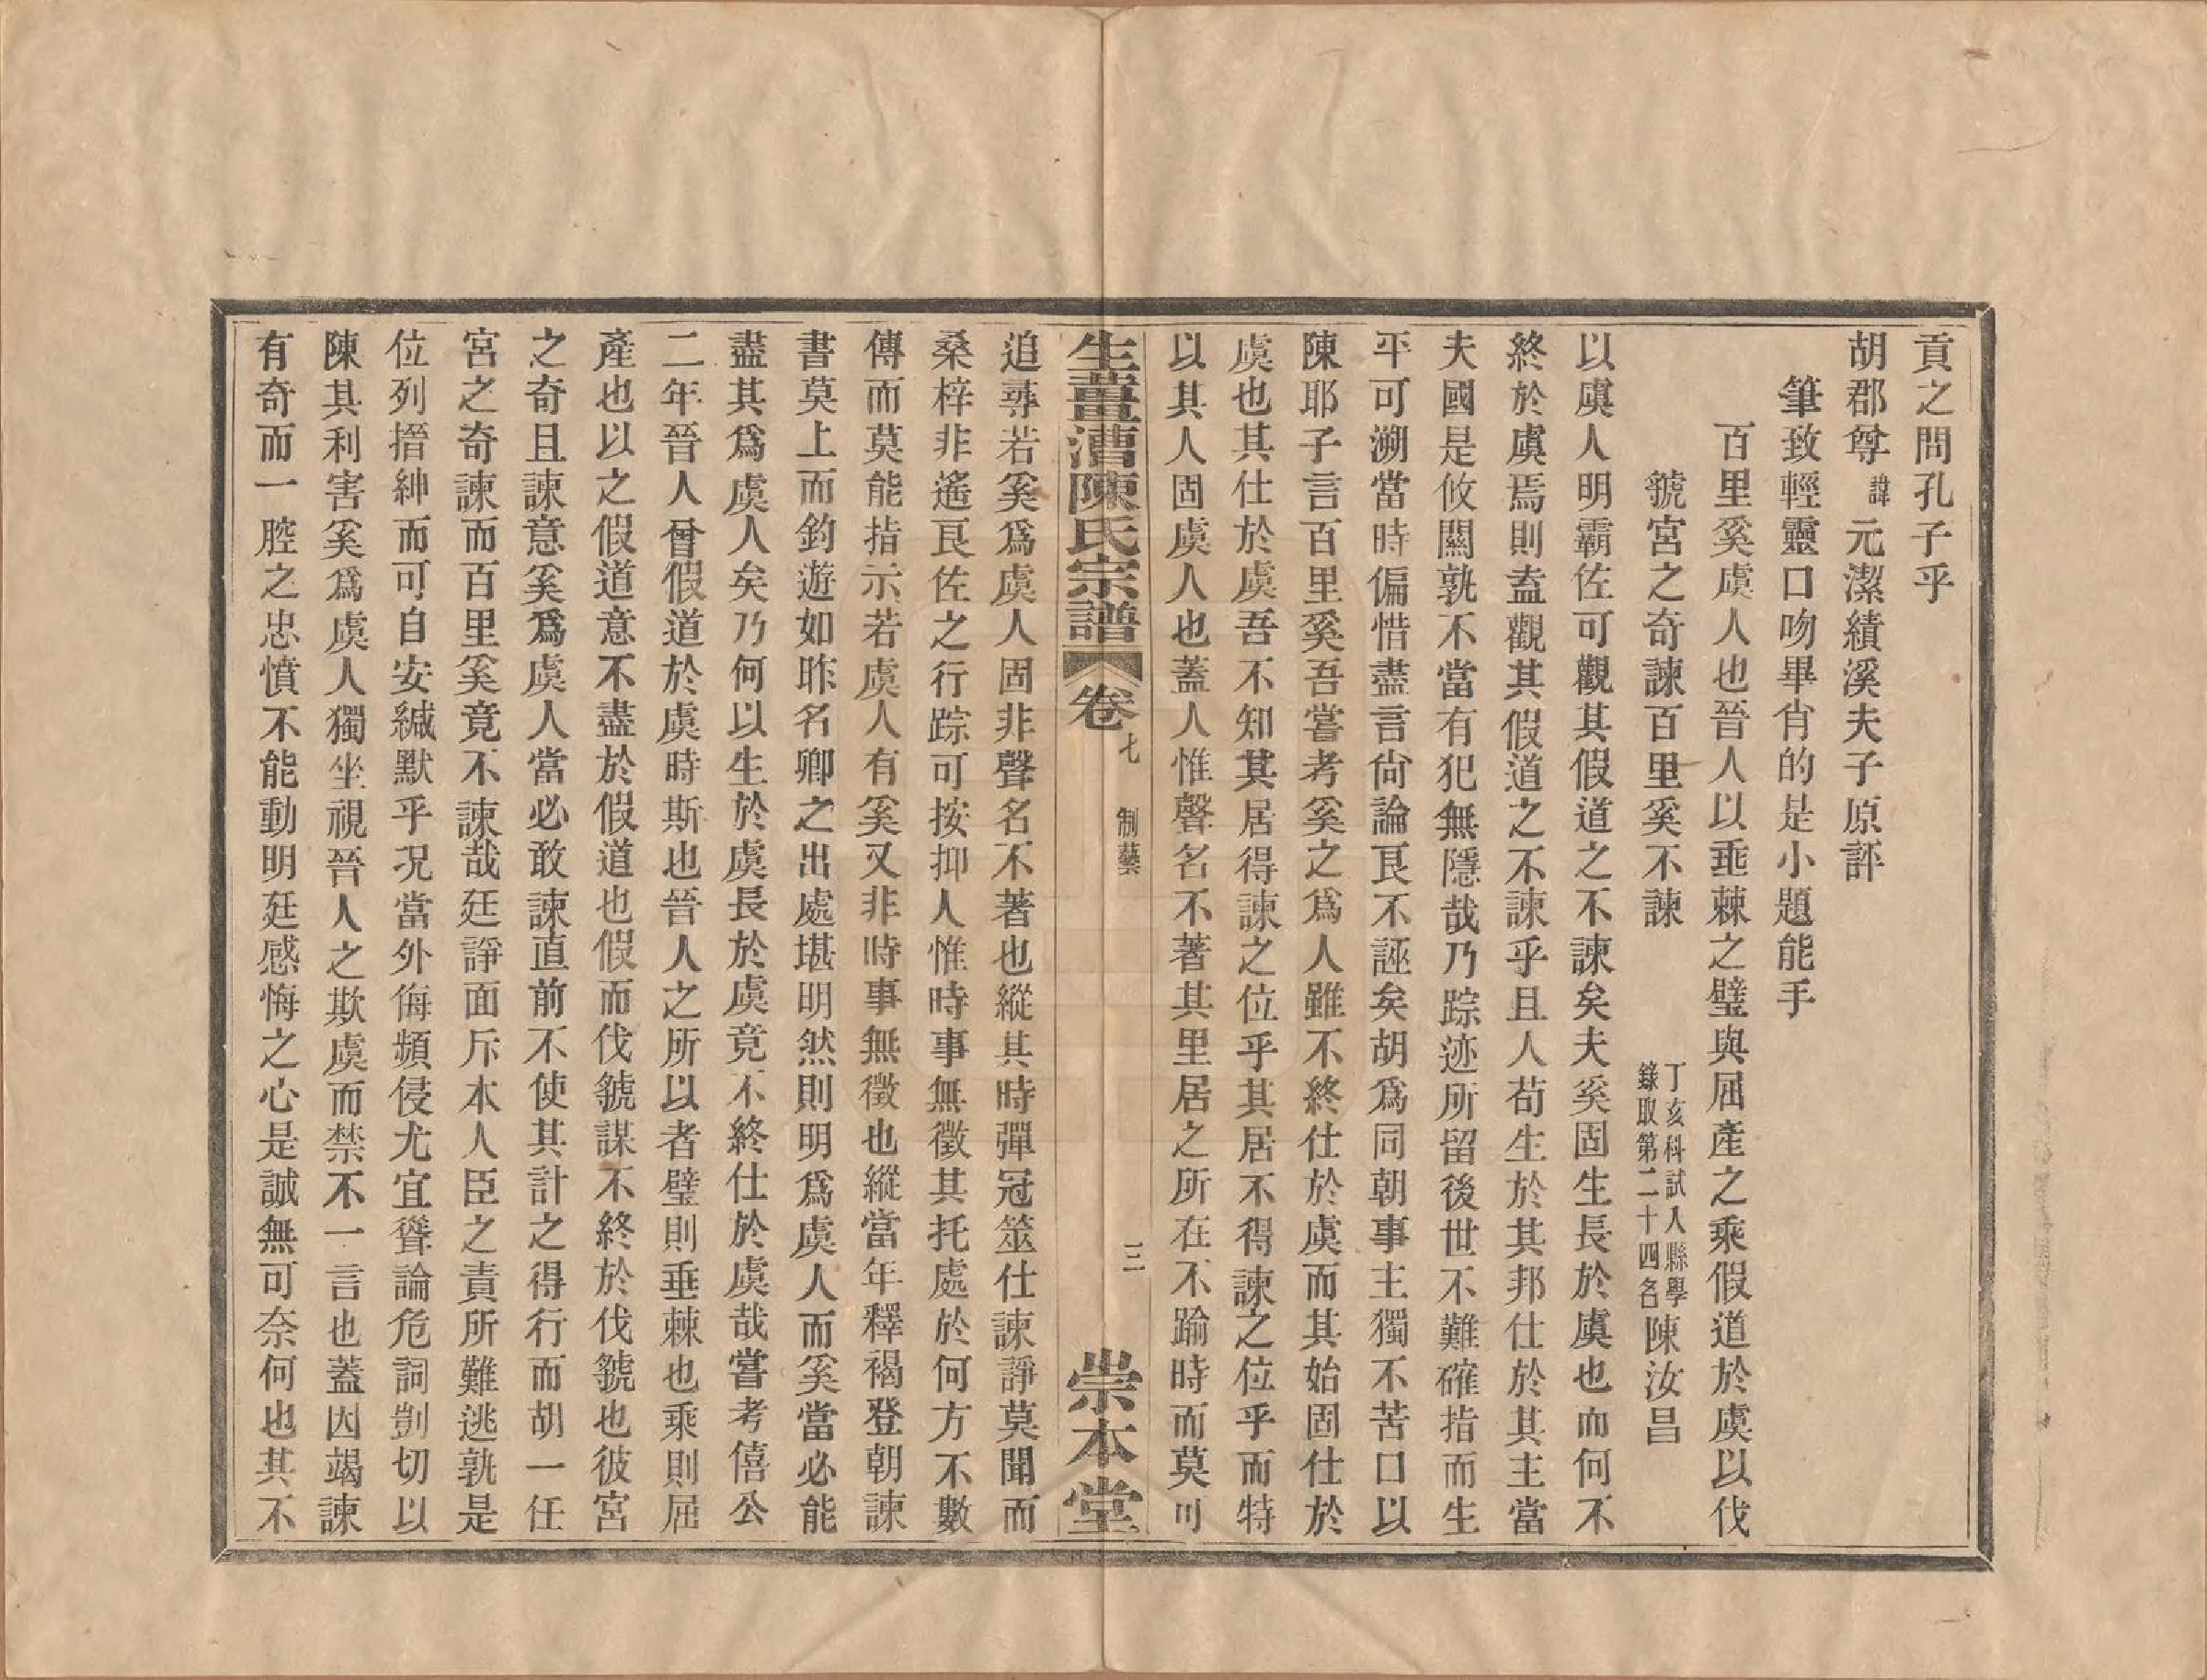 貢之問孔子乎
胡郡尊諱元潔績溪夫子原評
筆致輕靈口吻畢肖的是小題能手
百里奚虞人也晉人以垂棘之璧與屈產之乘假道於虞以伐
虢宮之奇諫百里奚不諫
丁亥科試入縣學
錄取第二十四名
陳汝昌
以虞人明霸佐可觀其假道之不諫矣夫奚固生長於虞也而何不
終於虞焉則盍觀其假道之不諫乎且人苟生於其邦仕於其主當
夫國是攸關孰不當有犯無隱哉乃踪迹所留後世不難確指而生
平可溯當時偏惜盡言尙論艮不誣矣胡爲同朝事主獨不苦口以
陳耶子言百里奚吾嘗考奚之爲人雖不終仕於虞而其始固仕於
虞也其仕於虞吾不知其居得諫之位乎其居不得諫之位乎而特
以其人固虞人也蓋人惟聲名不著其里居之所在不踰時而莫可
生薑漕陳氏宗譜 卷七 制藝 三 崇本堂
追尋若奚爲虞人固非聲名不著也縱其時彈冠筮仕諫諍莫聞而
桑梓非遙艮佐之行踪可按抑人惟時事無徵其托處於何方不數
傳而莫能指示若虞人有奚又非時事無徵也縱當年釋褐登朝諫
書莫上而釣遊如昨名卿之出處堪明然則明爲虞人而奚當必能
盡其爲虞人矣乃何以生於虞長於虞竟不終仕於虞哉嘗考僖公
二年晉人曾假道於虞時斯也晉人之所以者璧則垂棘也乘則屈
產也以之假道意不盡於假道也假而伐虢謀不終於伐虢也彼宮
之奇且諫意奚爲虞人當必敢諫直前不使其計之得行而胡一任
宮之奇諫而百里奚竟不諫哉廷諍面斥本人臣之責所難逃孰是
位列搢紳而可自安緘默乎況當外侮頻侵尤宜聳論危詞剴切以
陳其利害奚爲虞人獨坐視晉人之欺虞而禁不一言也蓋因竭諫
有奇而一腔之忠憤不能動明廷感悔之心是誠無可奈何也其不